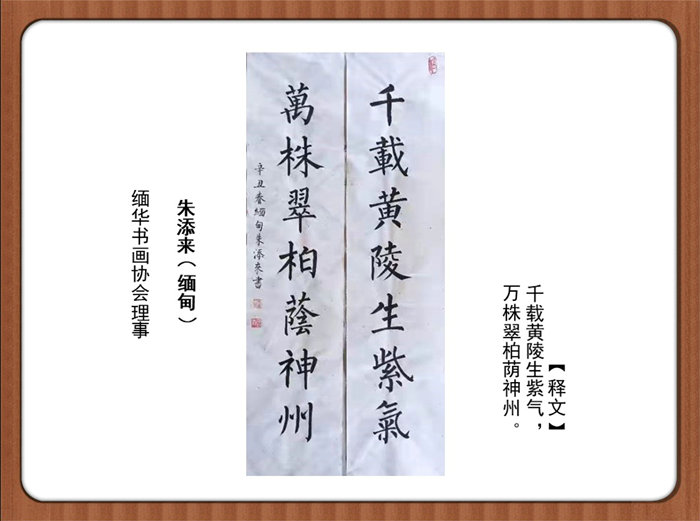 千載黄陵生紫氣
萬株翠柏蔭神州
辛丑春緬甸朱添來書
【释文】
千载黄陵生紫气，
万株翠柏荫神州。
朱添来（缅甸）
缅华书画协会理事